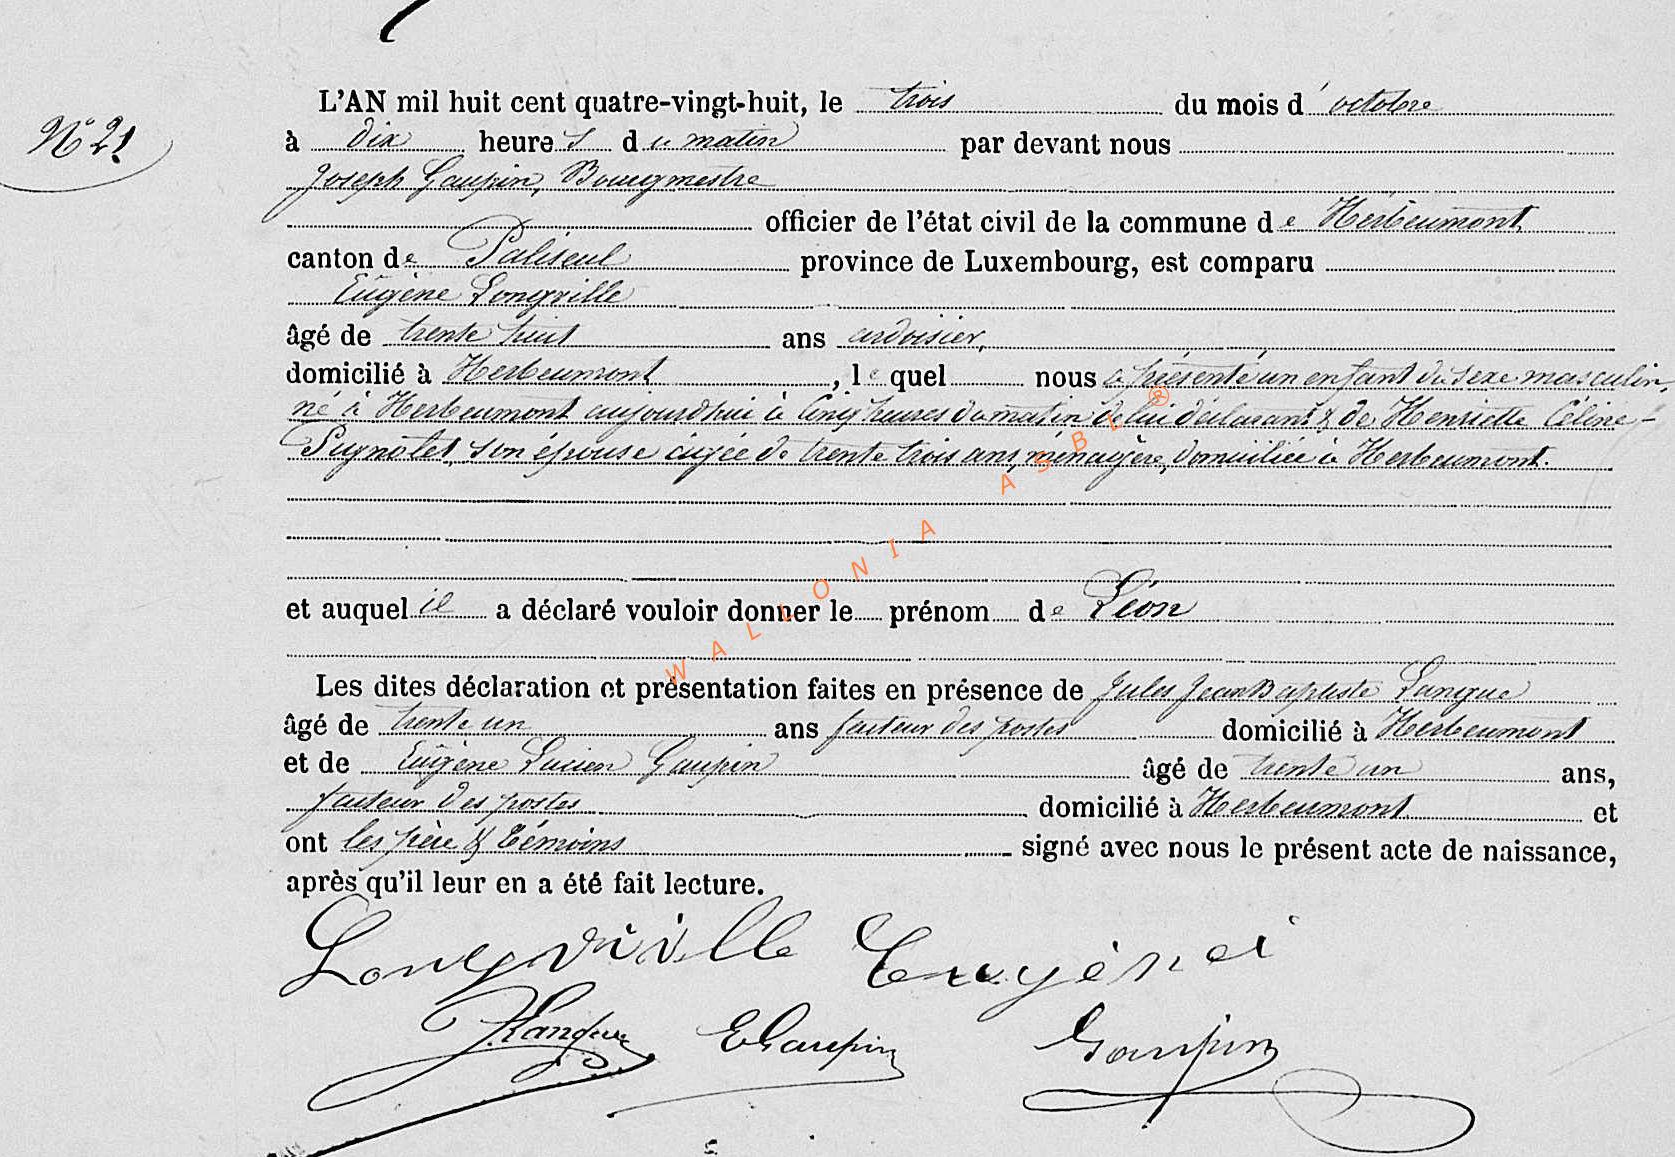 N° 21
L'AN mil huit cent quatre-vingt-huit, le trois du mois d'octobre
à dix heures du matin par devant nous
Joseph Gaupin, Bourgmestre
officier de l'état civil de la commune de Herbeumont
canton de Paliseul province de Luxembourg, est comparu
Eugène Longville
âgé de trente huit ans ardoisier,
domicilié à Herbeumont, lequel nous a présenté un enfant du sexe masculin,
né à Herbeumont aujourd'hui à cinq heures du matin de lui déclarant & de Henriette Céline
Pugnolet, son épouse âgée de trente trois ans, ménagère, domiciliée à Herbeumont.
et auquel il a déclaré vouloir donner le prénom de Léon
Les dites déclaration et présentation faites en présence de Jules Jean Baptiste Langue
âgé de trente un ans facteur des postes domicilié à Herbeumont
et de Eugène Lucien Gaupin âgé de trente un ans,
facteur des postes domicilié à Herbeumont et
ont les père & témoins signé avec nous le présent acte de naissance,
après qu'il leur en a été fait lecture.
Longville Eugène
J Langue E Gaupin Gaupin
WALLONIA ASBL ®